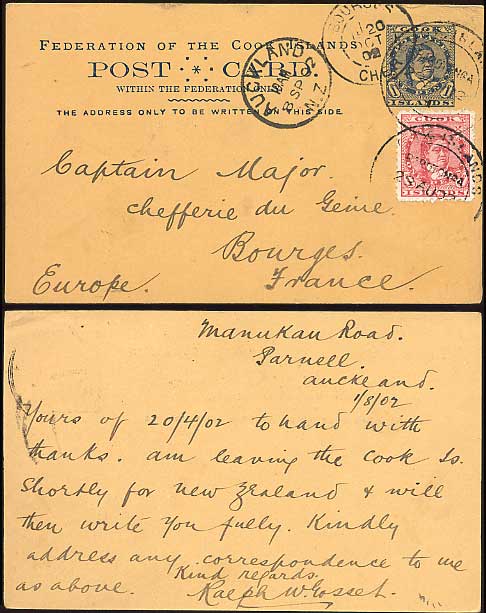 FEDERATION OF THE COOK ISLANDS
POST CARD.
WITHIN THE FEDERATION ONLY
THE ADDRESS ONLY TO BE WRITTEN ON THIS SIDE.
AUCKLAND N.Z.
SP
BOURGES
20
OCT
02
CHER
COOK
ISLANDS.
COOK
ISLANDS
RAROTONGA
Captain Major.
chefferie du Genie.
Bourges.
Europe. France.
Manukau Road.
Parnell.
Auckland.
1/8/02
Yours of 20/4/02 to hand with
thanks. am leaving the Cook Is.
Shortly for new Zealand & will
then write you fully. Kindly
address any correspondence to me
as above. Kind regards.
Ralph W Gosset.